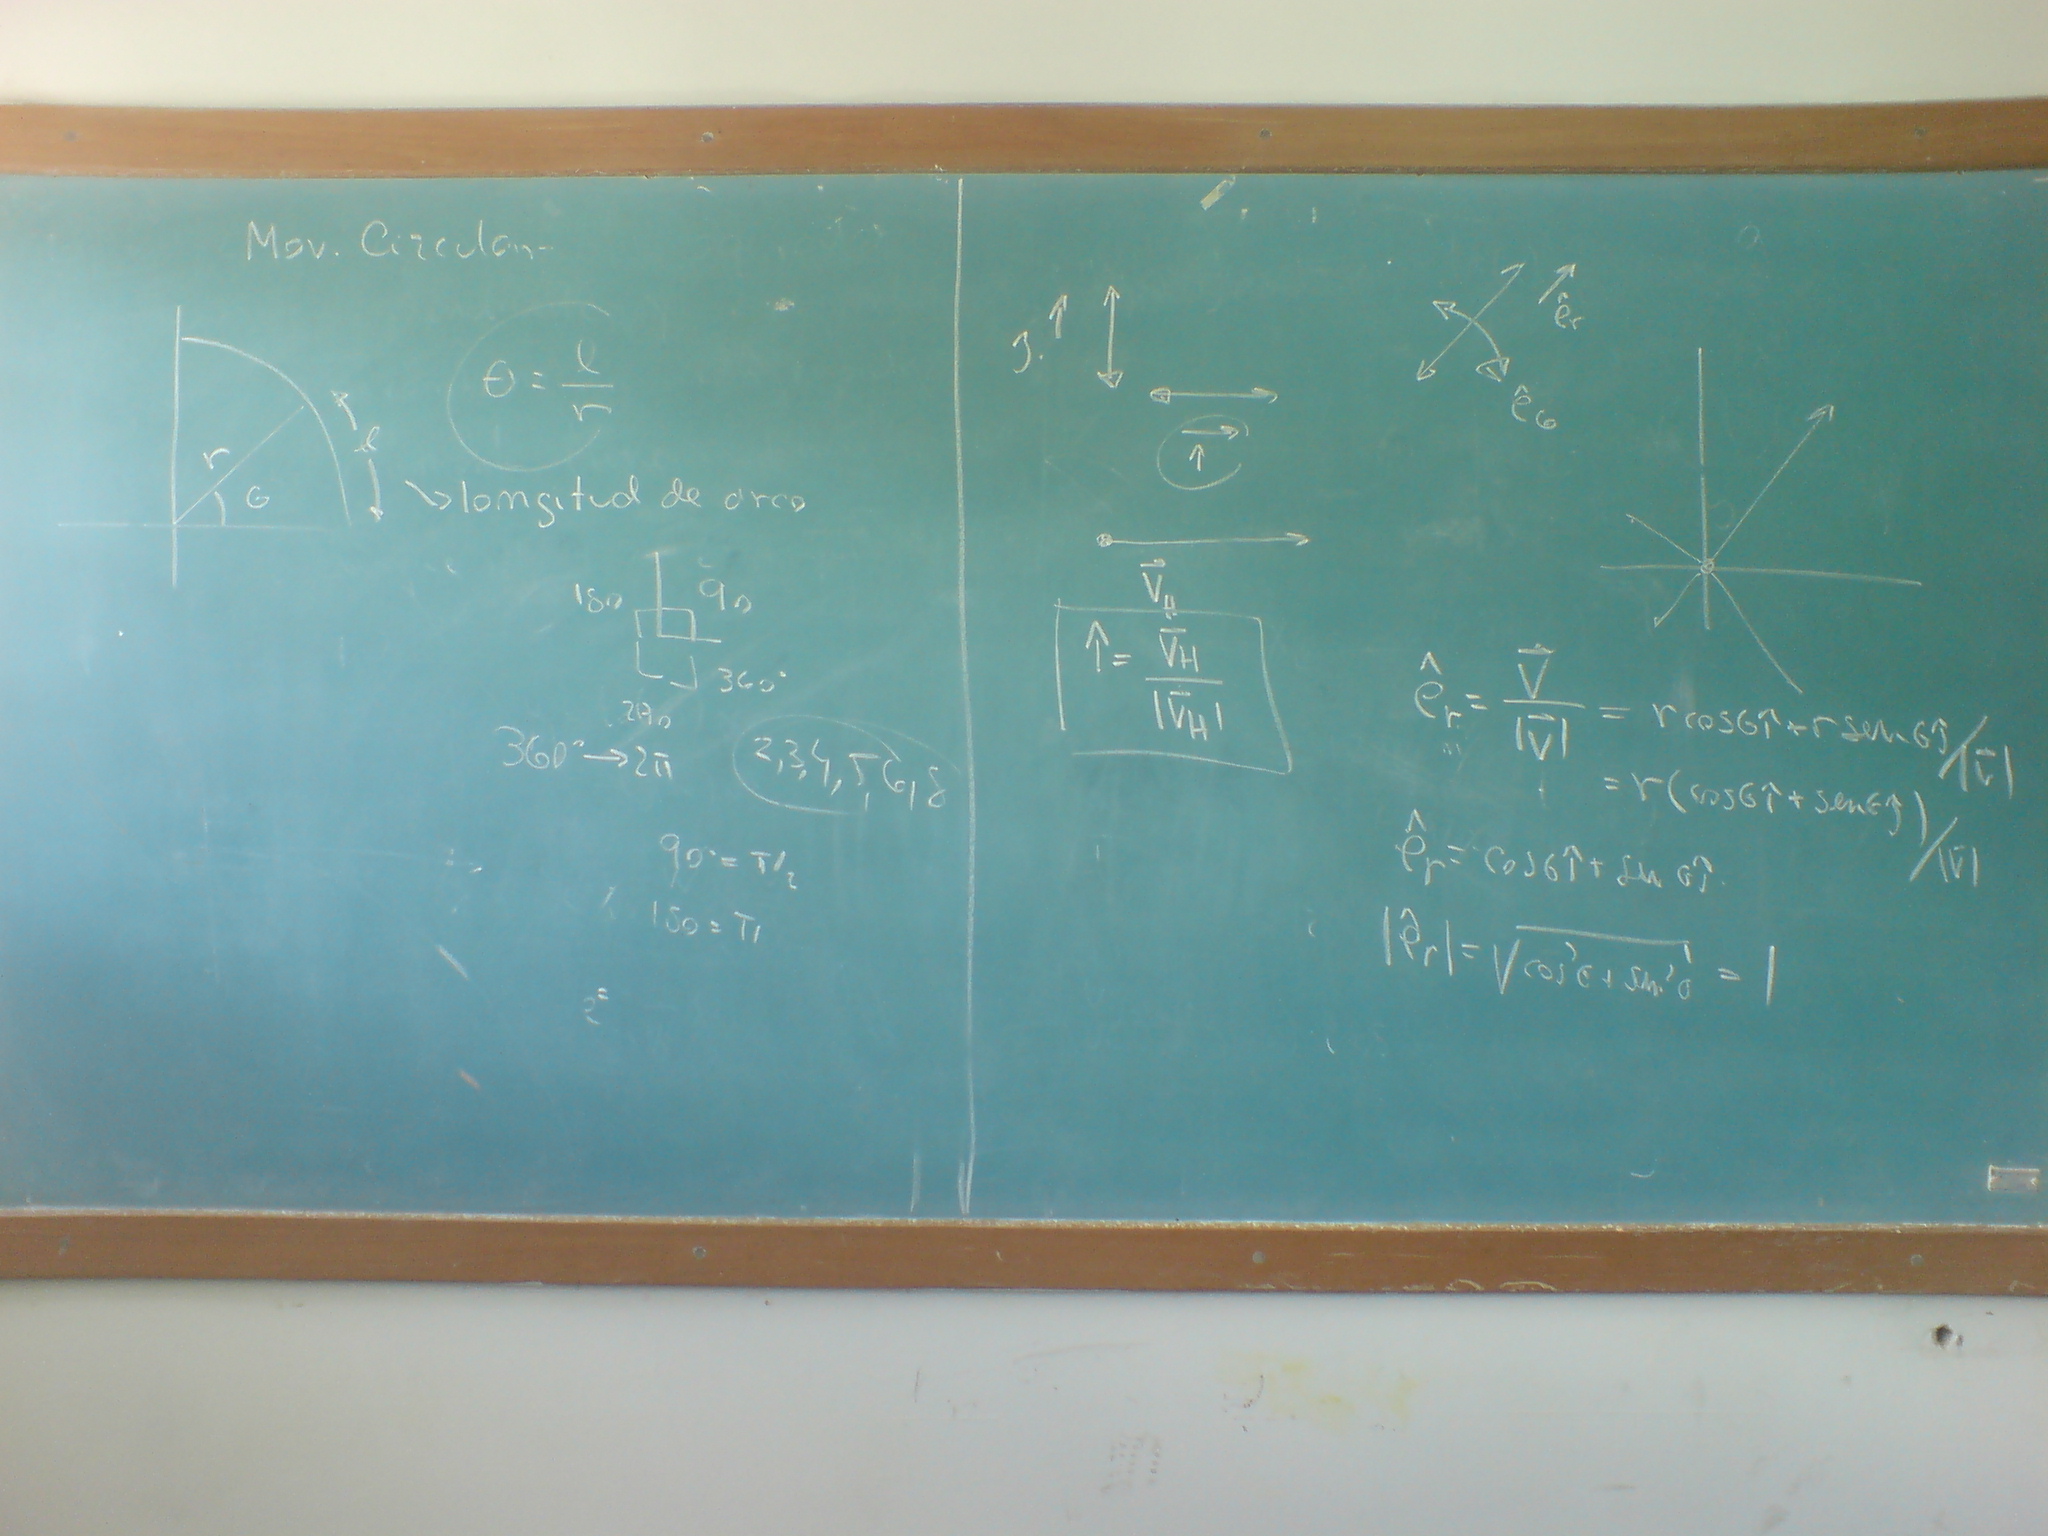 Mov. Circular
r
θ
l
θ = l/r
longitud de arco
180 90
360°
270
360° → 2π
2,3,4,5,6,8
90° = π/2
180 = π
ĵ
î
V⃗_H
î = V⃗_H/|V⃗_H|
ê_r
ê_θ
ê_r = V⃗/|V⃗| = r cosθ î + r senθ ĵ/|V⃗|
= r(cosθ î + senθ ĵ)/|V⃗|
ê_r = cosθ î + sen θ ĵ
|ê_r| = √cos²θ + sen²θ = 1